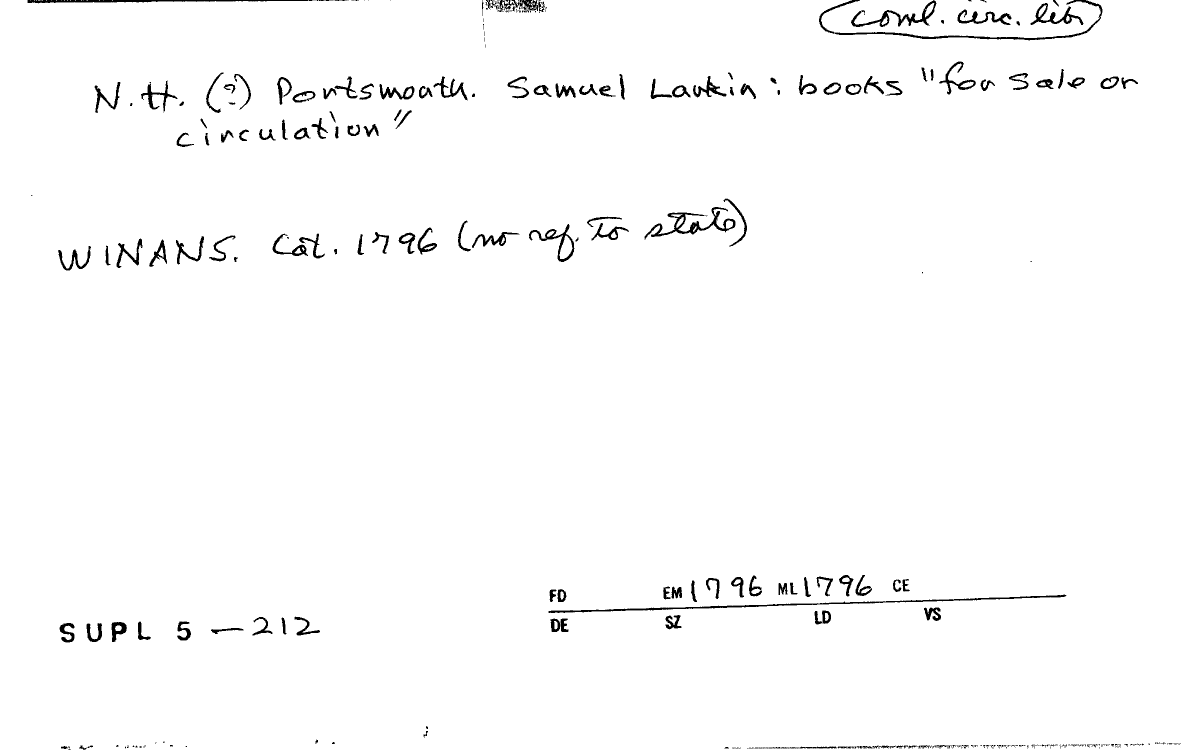 Coml. circ. lib
N.H. (?) Portsmouth. Samuel Larkin: books "for sale or
circulation"
WINANS. Cat. 1796 (no ref. to state)
FD EM 1796 ML 1796 CE
DE SZ LD VS
SUPL 5 — 212